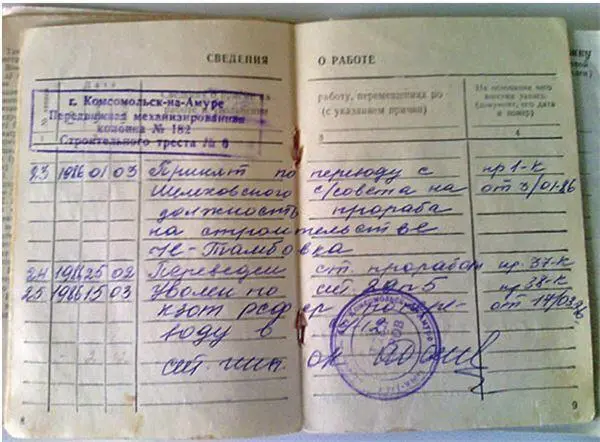 СВЕДЕНИЯ О РАБОТЕ
Дата
работу, перемещениях по
(с указанием причин)
На основании чего
внесена запись
(документ, его дата
и номер)
3 4
г. Комсомольск-на-Амуре
Передвижная механизированная
колонна № 182
Строительного треста № 6
23 1986 01 03 Принят по переводу с пр 1-к
Шелеховского с/совета на от 3/01-86
должность прораба
на строительстве
Н-Тамбовка
24 1986 25 02 Переведен ст. прорабом пр. 37-к
25 1986 15 03 Уволен по ст. 29 п 5 пр. 38-к
КЗОТ РСФСР
воду в
ст. инж. ок
9